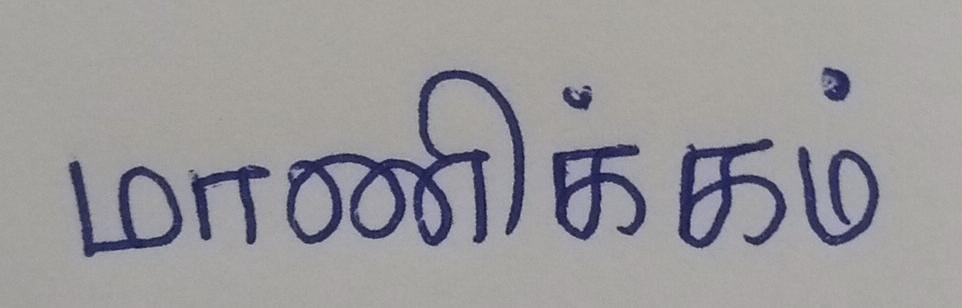 மாணிக்கம்